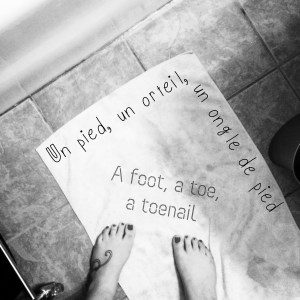 Un pied, un orteil, un ongle de pied
A foot, a toe,
a toenail